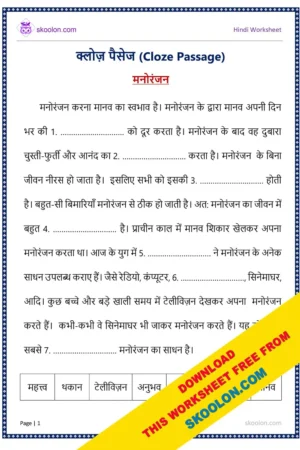 skoolon.com
Hindi Worksheet
क्लोज़ पैसेज (Cloze Passage)
मनोरंजन
मनोरंजन करना मानव का स्वभाव है। मनोरंजन के द्वारा मानव अपनी दिन
भर की 1. .............................. को दूर करता है। मनोरंजन के बाद वह दुबारा
चुस्ती-फुर्ती और आनंद का 2. .............................. करता है। मनोरंजन के बिना
जीवन नीरस हो जाता है। इसलिए सभी को इसकी 3. .............................. होती
है। बहुत-सी बिमारियाँ मनोरंजन से ठीक हो जाती है। अत: मनोरंजन का जीवन में
बहुत 4. .............................. है। प्राचीन काल में मानव शिकार खेलकर अपना
मनोरंजन करता था। आज के युग में 5. .............................. ने मनोरंजन के अनेक
साधन उपलब्ध कराए हैं। जैसे रेडियो, कंप्यूटर, 6. .............................., सिनेमाघर,
आदि। कुछ बच्चे और बड़े खाली समय में टेलीविज़न देखकर अपना मनोरंजन
करते हैं। कभी-कभी वे सिनेमाघर भी जाकर मनोरंजन करते हैं। यह
सबसे 7. .............................. मनोरंजन का साधन है।
महत्त्व थकान टेलीविज़न अनुभव
DOWNLOAD
THIS WORKSHEET FREE FROM
SKOOLON.COM
Page | 1
skoolon.com